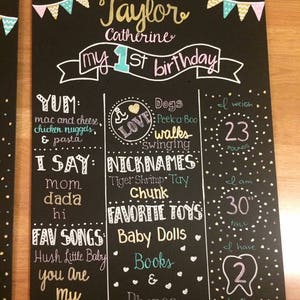 Taylor
Catherine
my 1st birthday
YUM:
mac and cheese
chicken nuggets
& pasta
I
LOVE
Dogs
Peek-a-Boo
walks
swinging
I weigh
23
pounds
I SAY:
mom
dada
hi
NICKNAMES:
Tiger Shrimp Tay
Chunk
I am
30"
FAV SONGS:
Hush Little Baby
you Are
My
FAVORITE TOYS
Baby Dolls
Books
&
I have
2